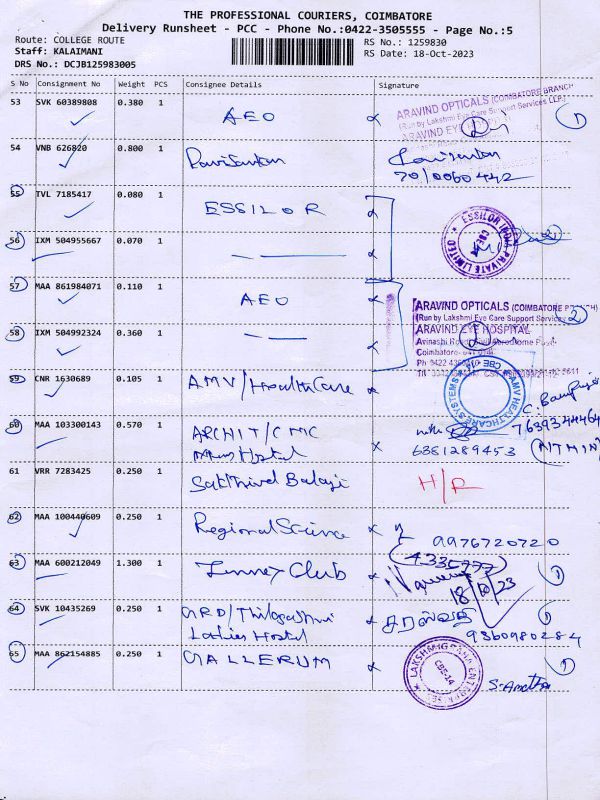 THE PROFESSIONAL COURIERS, COIMBATORE
Delivery Runsheet - PCC - Phone No.:0422-3505555 - Page No.:5
Route: COLLEGE ROUTE
RS No.: 1259830
Staff: KALAIMANI
RS Date: 18-Oct-2023
DRS No.: DCJB125983005
S No Consignment No Weight PCS Consignee Details Signature
53 SVK 60389808 0.380 1 AEO
ARAVIND OPTICALS (COIMBATORE BRANCH)
(Run by Lakshmi Eye Care Support Services LLP)
ARAVIND EYE
1
54 VNB 626820 0.800 1
55 TVL 7185417 0.080 1 ESSILOR
ESSILOR INDIA PRIVATE LIMITED
CBE
56 IXM 504955667 0.070 1
57 MAA 861984071 0.110 1 AEO
ARAVIND OPTICALS (COIMBATORE
(Run by Lakshmi Eye Care Support Services
ARAVIND EYE HOSPITAL
2
58 IXM 504992324 0.360 1
59 CNR 1630689 0.105 1 AMV/HealthCare
AMV HEALTHCARE SYSTEMS
60 MAA 103300143 0.570 1 ARCHIT/CMC
Mens Hostel
6381289453
61 VRR 7283425 0.250 1 Sakthivel Balaji
H/R
62 MAA 100440609 0.250 1 Regional Science
9976720720
63 MAA 600212049 1.300 1 Club
18 10 23
1
64 SVK 10435269 0.250 1
Ladies Hostel
9360980284
65 MAA 862154885 0.250 1 GALLERUM
CBE-14
1